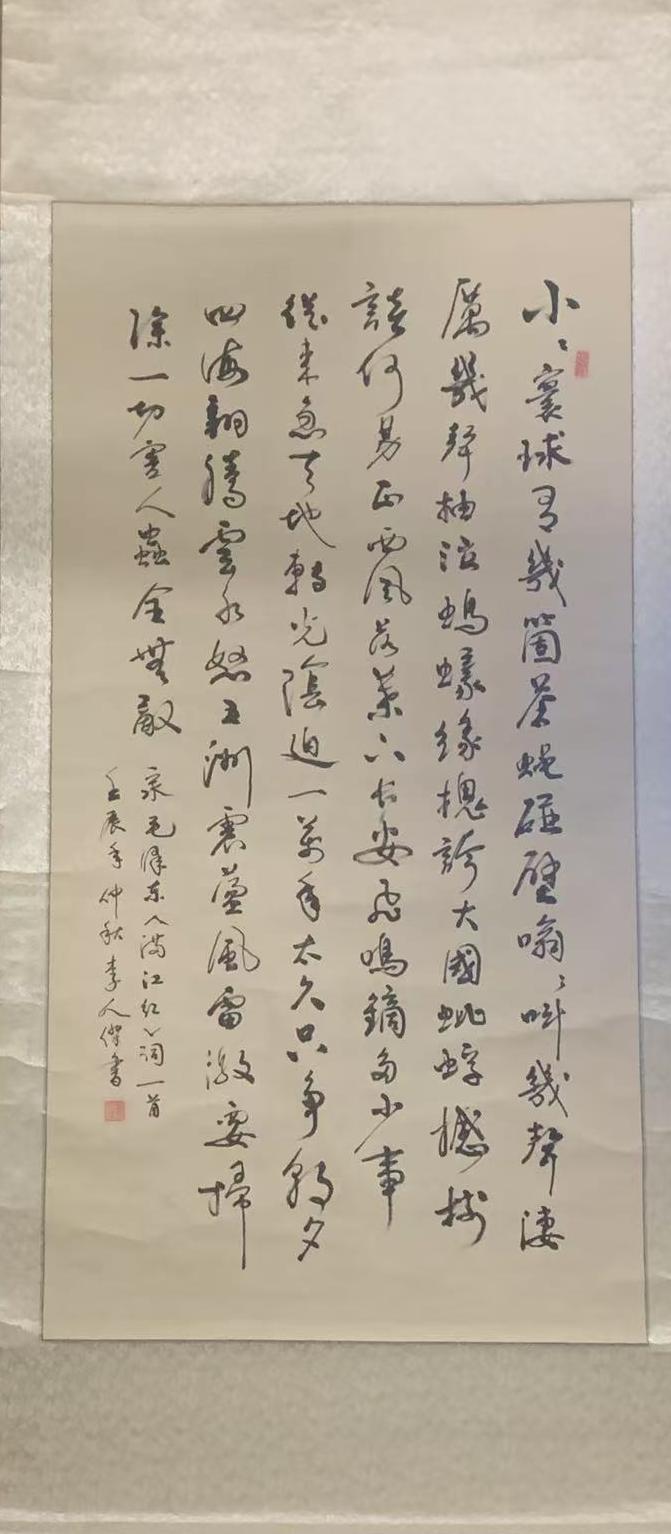 小々寰球有幾箇蒼蝇碰壁嗡々叫幾聲凄
厲幾聲抽泣螞蟻緣槐誇大國蚍蜉撼樹
談何易正西風落葉下长安飛鳴鏑多少事
從来急天地轉光陰迫一萬年太久只争朝夕
四海翻騰雲水怒五洲震蕩風雷激要掃
除一切害人蟲全無敵
录毛泽东《满江红》词一首
壬辰年仲秋李人傑書